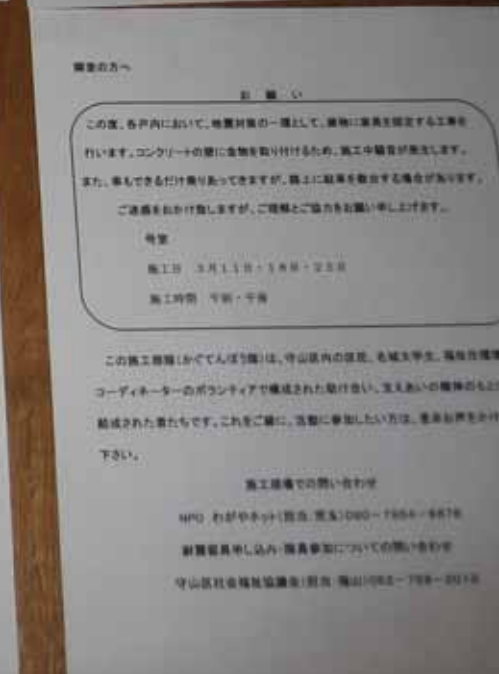 隣室の方へ
お 願 い
この度、各戸内において、地震対策の一環として、建物に家具を固定する工事を
行います。コンクリートの壁に金物を取り付けるため、施工中騒音が発生します。
また、車もできるだけ乗りあってきますが、路上に駐車を数台する場合があります。
ご迷惑をおかけ致しますが、ご理解とご協力をお願い申し上げます。
号室
施工日 3月11日・18日・25日
施工時間 午前・午後
この施工部隊(かぐてんぼう隊)は、守山区内の区民、名城大学生、福祉住環境
コーディネーターのボランティアで構成された助け合い、支えあいの精神のもと
結成された者たちです。これをご縁に、活動に参加したい方は、是非お声をかけ
下さい。
施工現場での問い合わせ
NPO わがやネット(担当:児玉)
耐震器具申し込み・隊員参加についての問い合わせ
守山区社会福祉協議会(担当: